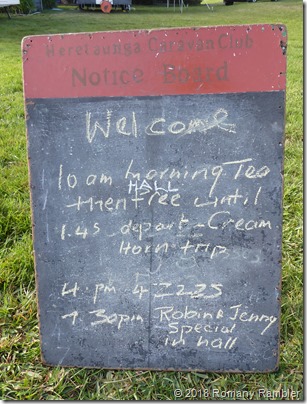 Heretaunga Caravan Club
Notice Board
Welcome
10 am Morning Tea
HALL
then free until
1.45 depart - Cream
Horn trip
4 pm 4 ZZZS
7 30pm Robin & Jenny
Special
in hall
© 2018 Romany Rambler